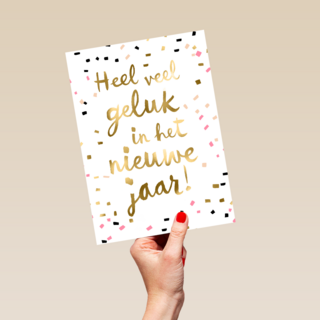 Heel veel
geluk
in het
nieuwe
jaar!